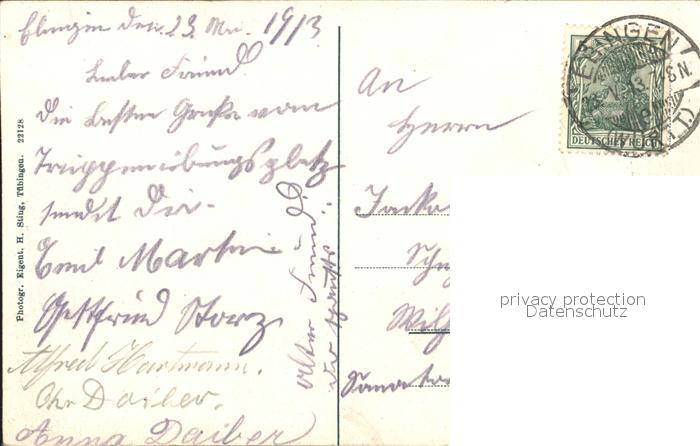 Ebingen den 23. Mai. 1913
Lieber Freund!
Die besten Grüße vom
Truppenübungsplatz
sendet Dir.
Emil Martin
Gottfried Storz
Alfred Hartmann.
Chr Daiber.
Anna Daiber
alter Freund!
An
Herrn
Photogr. Eigent. H. Sting, Tübingen. 22128
EBINGEN
(WÜRTT)
DEUTSCHES REICH
privacy protection
Datenschutz